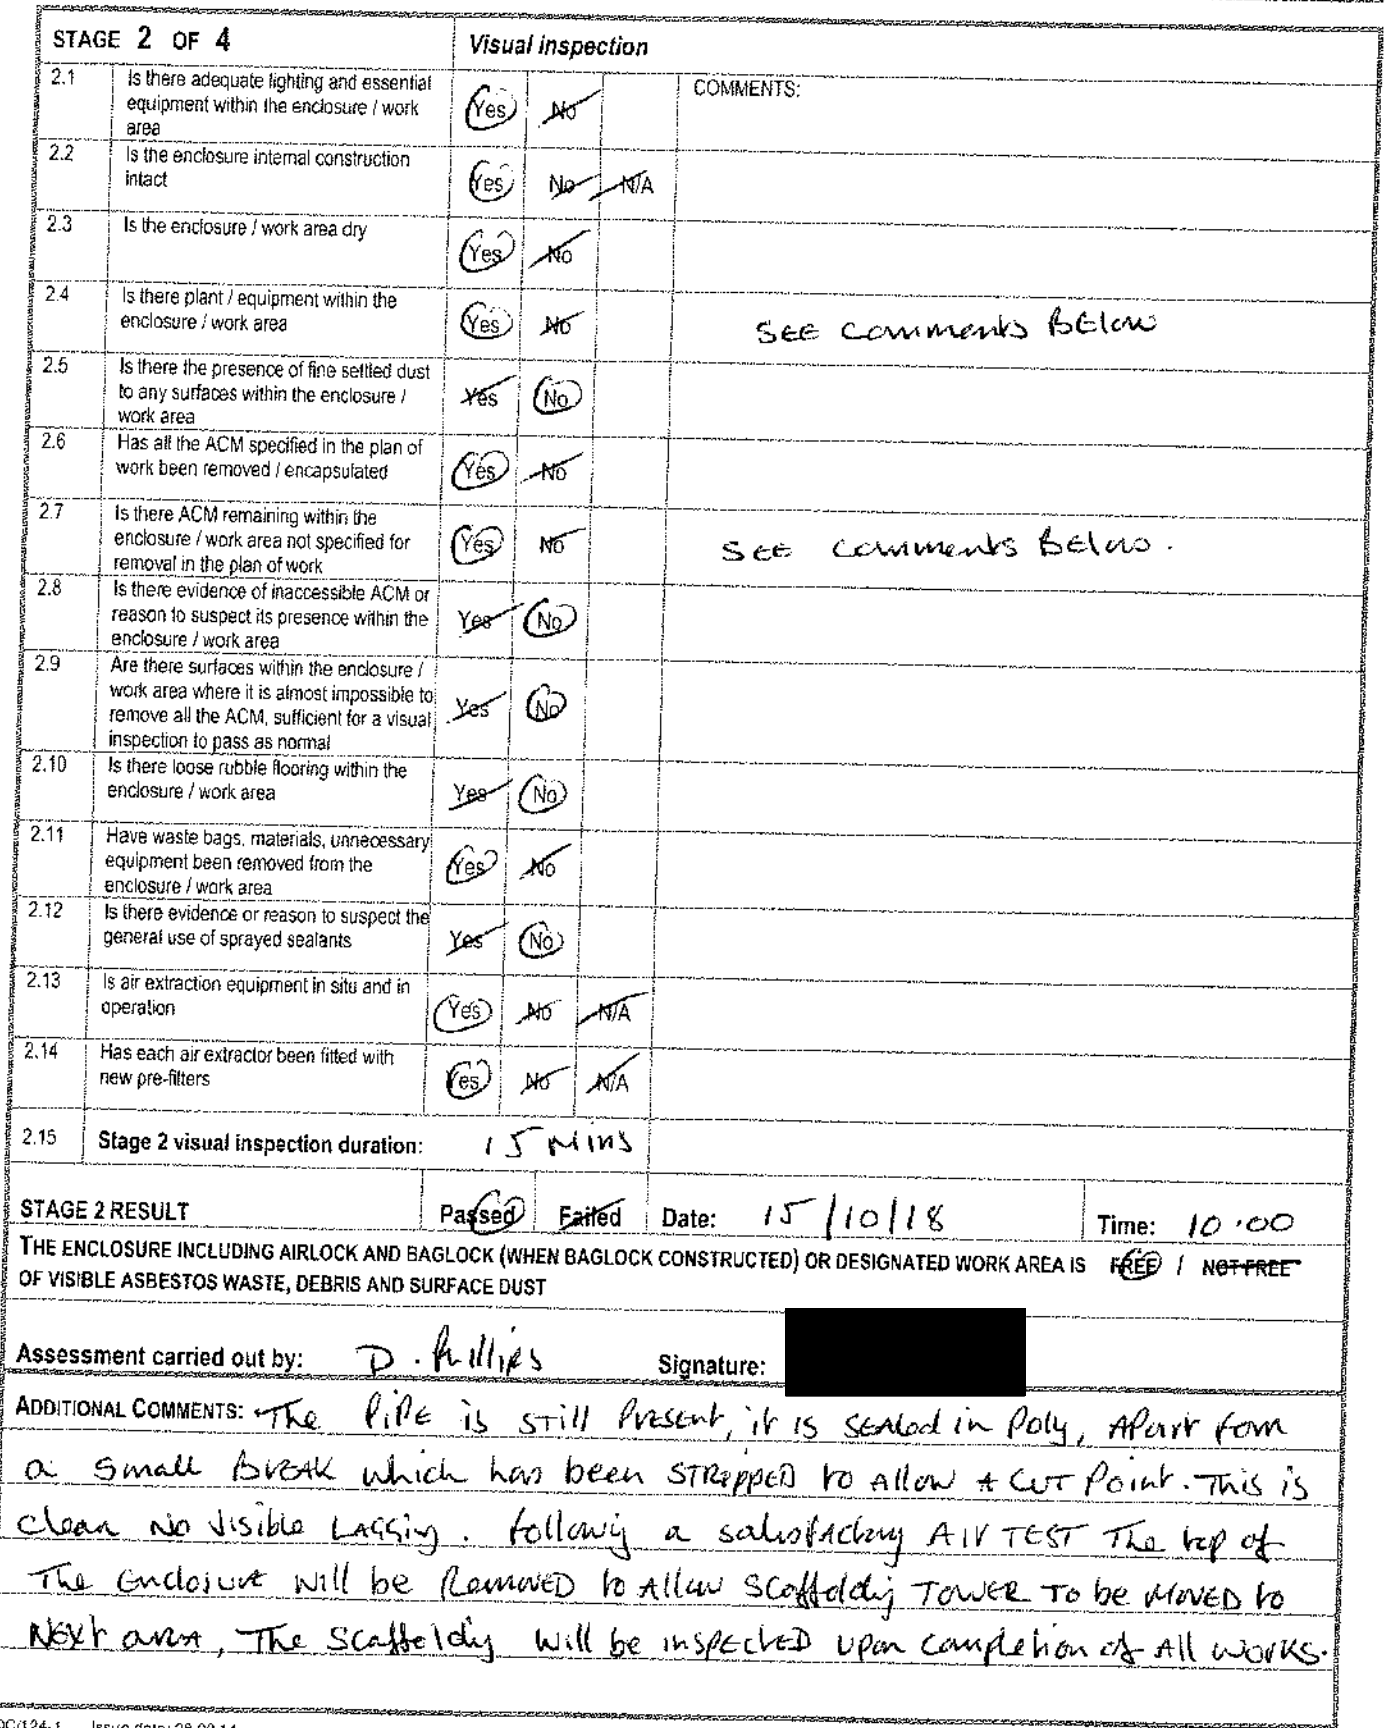 STAGE 2 OF 4 Visual inspection
2.1 Is there adequate lighting and essential Yes No COMMENTS:
equipment within the enclosure / work
area
2.2 Is the enclosure internal construction Yes No N/A
intact
2.3 Is the enclosure / work area dry Yes No
2.4 Is there plant / equipment within the Yes No SEE Comments BElow
enclosure / work area
2.5 Is there the presence of fine settled dust Yes No
to any surfaces within the enclosure /
work area
2.6 Has all the ACM specified in the plan of Yes No
work been removed / encapsulated
2.7 Is there ACM remaining within the Yes No SEE Comments BElow.
enclosure / work area not specified for
removal in the plan of work
2.8 Is there evidence of inaccessible ACM or Yes No
reason to suspect its presence within the
enclosure / work area
2.9 Are there surfaces within the enclosure / Yes No
work area where it is almost impossible to
remove all the ACM, sufficient for a visual
inspection to pass as normal
2.10 Is there loose rubble flooring within the Yes No
enclosure / work area
2.11 Have waste bags, materials, unnecessary Yes No
equipment been removed from the
enclosure / work area
2.12 Is there evidence or reason to suspect the Yes No
general use of sprayed sealants
2.13 Is air extraction equipment in situ and in Yes No N/A
operation
2.14 Has each air extractor been fitted with Yes No N/A
new pre-filters
2.15 Stage 2 visual inspection duration: 15 Mins
STAGE 2 RESULT Passed Failed Date: 15/10/18 Time: 10.00
THE ENCLOSURE INCLUDING AIRLOCK AND BAGLOCK (WHEN BAGLOCK CONSTRUCTED) OR DESIGNATED WORK AREA IS FREE / NOT FREE
OF VISIBLE ASBESTOS WASTE, DEBRIS AND SURFACE DUST
Assessment carried out by: D. Phillips Signature:
ADDITIONAL COMMENTS: The PiPE is STill PresENT, it is SEAled in Poly, APart from
a Small BrEAK which has been STRipPED to Allow A CUT Point. This is
Clean No Visible LAGGing. Following a satisfactory AIr TEST The top of
The Enclosure will be RemovED to Allow Scaffolding TOWER TO be MOVED to
NExt area, The Scaffolding will be inspECtED upon Completion of All works.